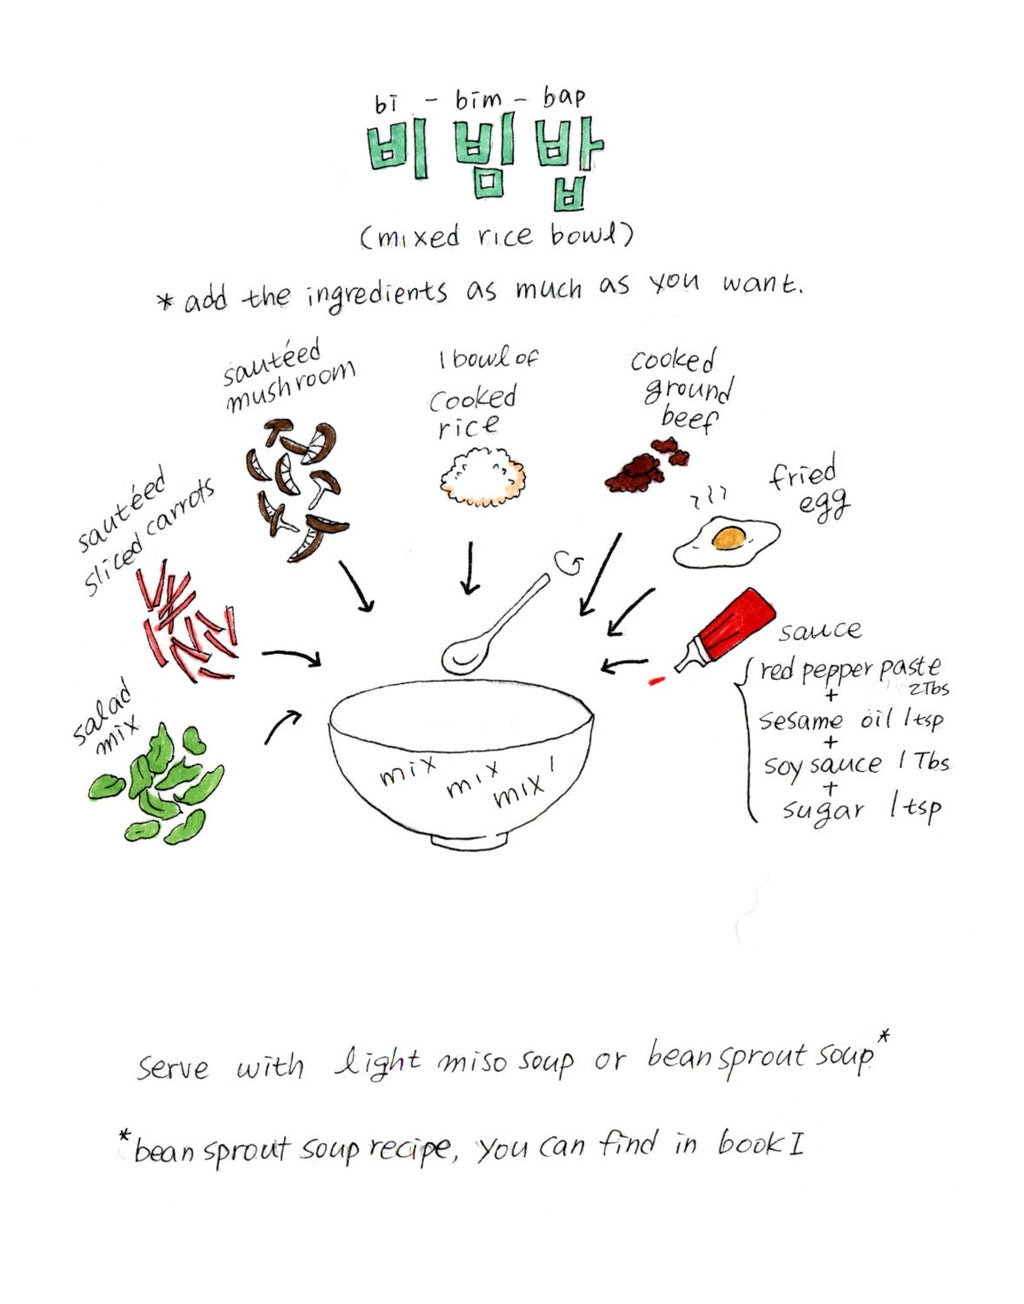 bi - bim - bap
비빔밥
(mixed rice bowl)
* add the ingredients as much as you want.
sautéed
mushroom
1 bowl of
cooked
rice
cooked
ground
beef
fried
egg
sautéed
sliced carrots
salad
mix
sauce
red pepper paste
2Tbs
+
sesame oil 1tsp
+
soy sauce 1 Tbs
+
sugar 1tsp
mix
mix
mix!
serve with light miso soup or bean sprout soup*
*bean sprout soup recipe, you can find in book I